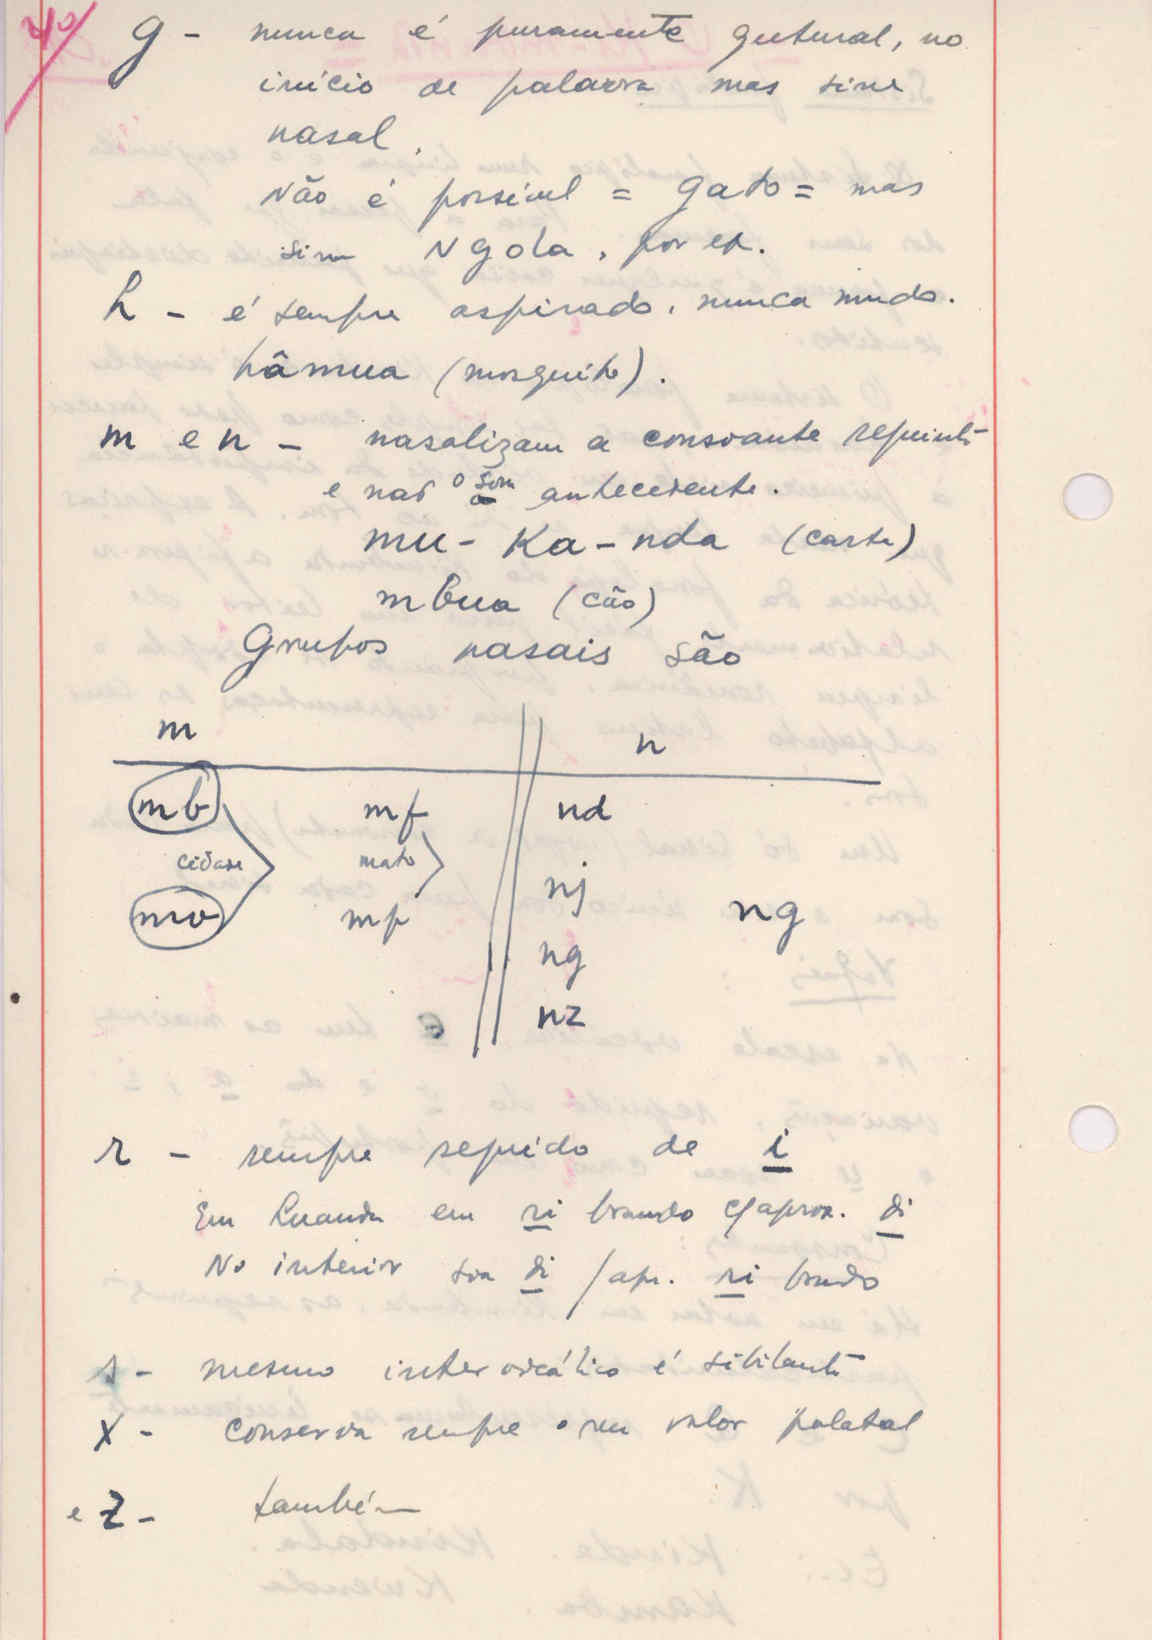 4º
g - nunca é puramente gutural, no
início de palavra mas sim
nasal.
Não é possível = gato = mas
sim Ngola, por ex.
h - é sempre aspirado, nunca mudo.
hâmua (mosquito).
m e n - nasalizam a consoante seguinte
e não o som antecedente.
mu-Ka-nda (carta)
mbua (cão)
Grupos nasais são
m n
mb mf nd
cidade mato nj
mv mp ng
ng
nz
r - sempre seguido de i
Em Luanda em ri brando c/aprox. di
No interior soa di /apr. ri brando
s - mesmo intervocálico é sibilante
x - conserva sempre o seu valor palatal
e z - também